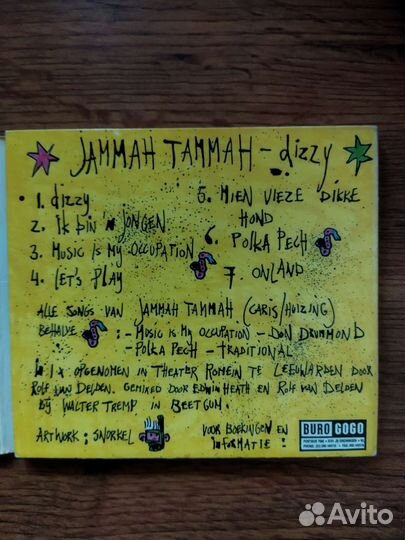 JAMMAH TAMMAH - dizzy
1. dizzy
2. Ik bin 'n jongen
3. MUSIC IS MY OCCUPATION
4. LET'S PLAY
5. MIEN VIEZE DIKKE HOND
6. POLKA PECH
7. ONLAND
ALLE SONGS VAN JAMMAH TAMMAH (CARIS/HUIZING)
BEHALVE : - MUSIC IS MY OCCUPATION - DON DRUMMOND
- POLKA PECH - TRADITIONAL
OPGENOMEN IN THEATER ROMEIN TE LEEUWARDEN DOOR
ROLF VAN DELDEN, GEMIXED DOOR EDWIN HEATH EN ROLF VAN DELDEN
BIJ WALTER TREMP IN BEETGUM.
ARTWORK: SNORKEL
VOOR BOEKINGEN EN
INFORMATIE:
BURO GOGO
Avito